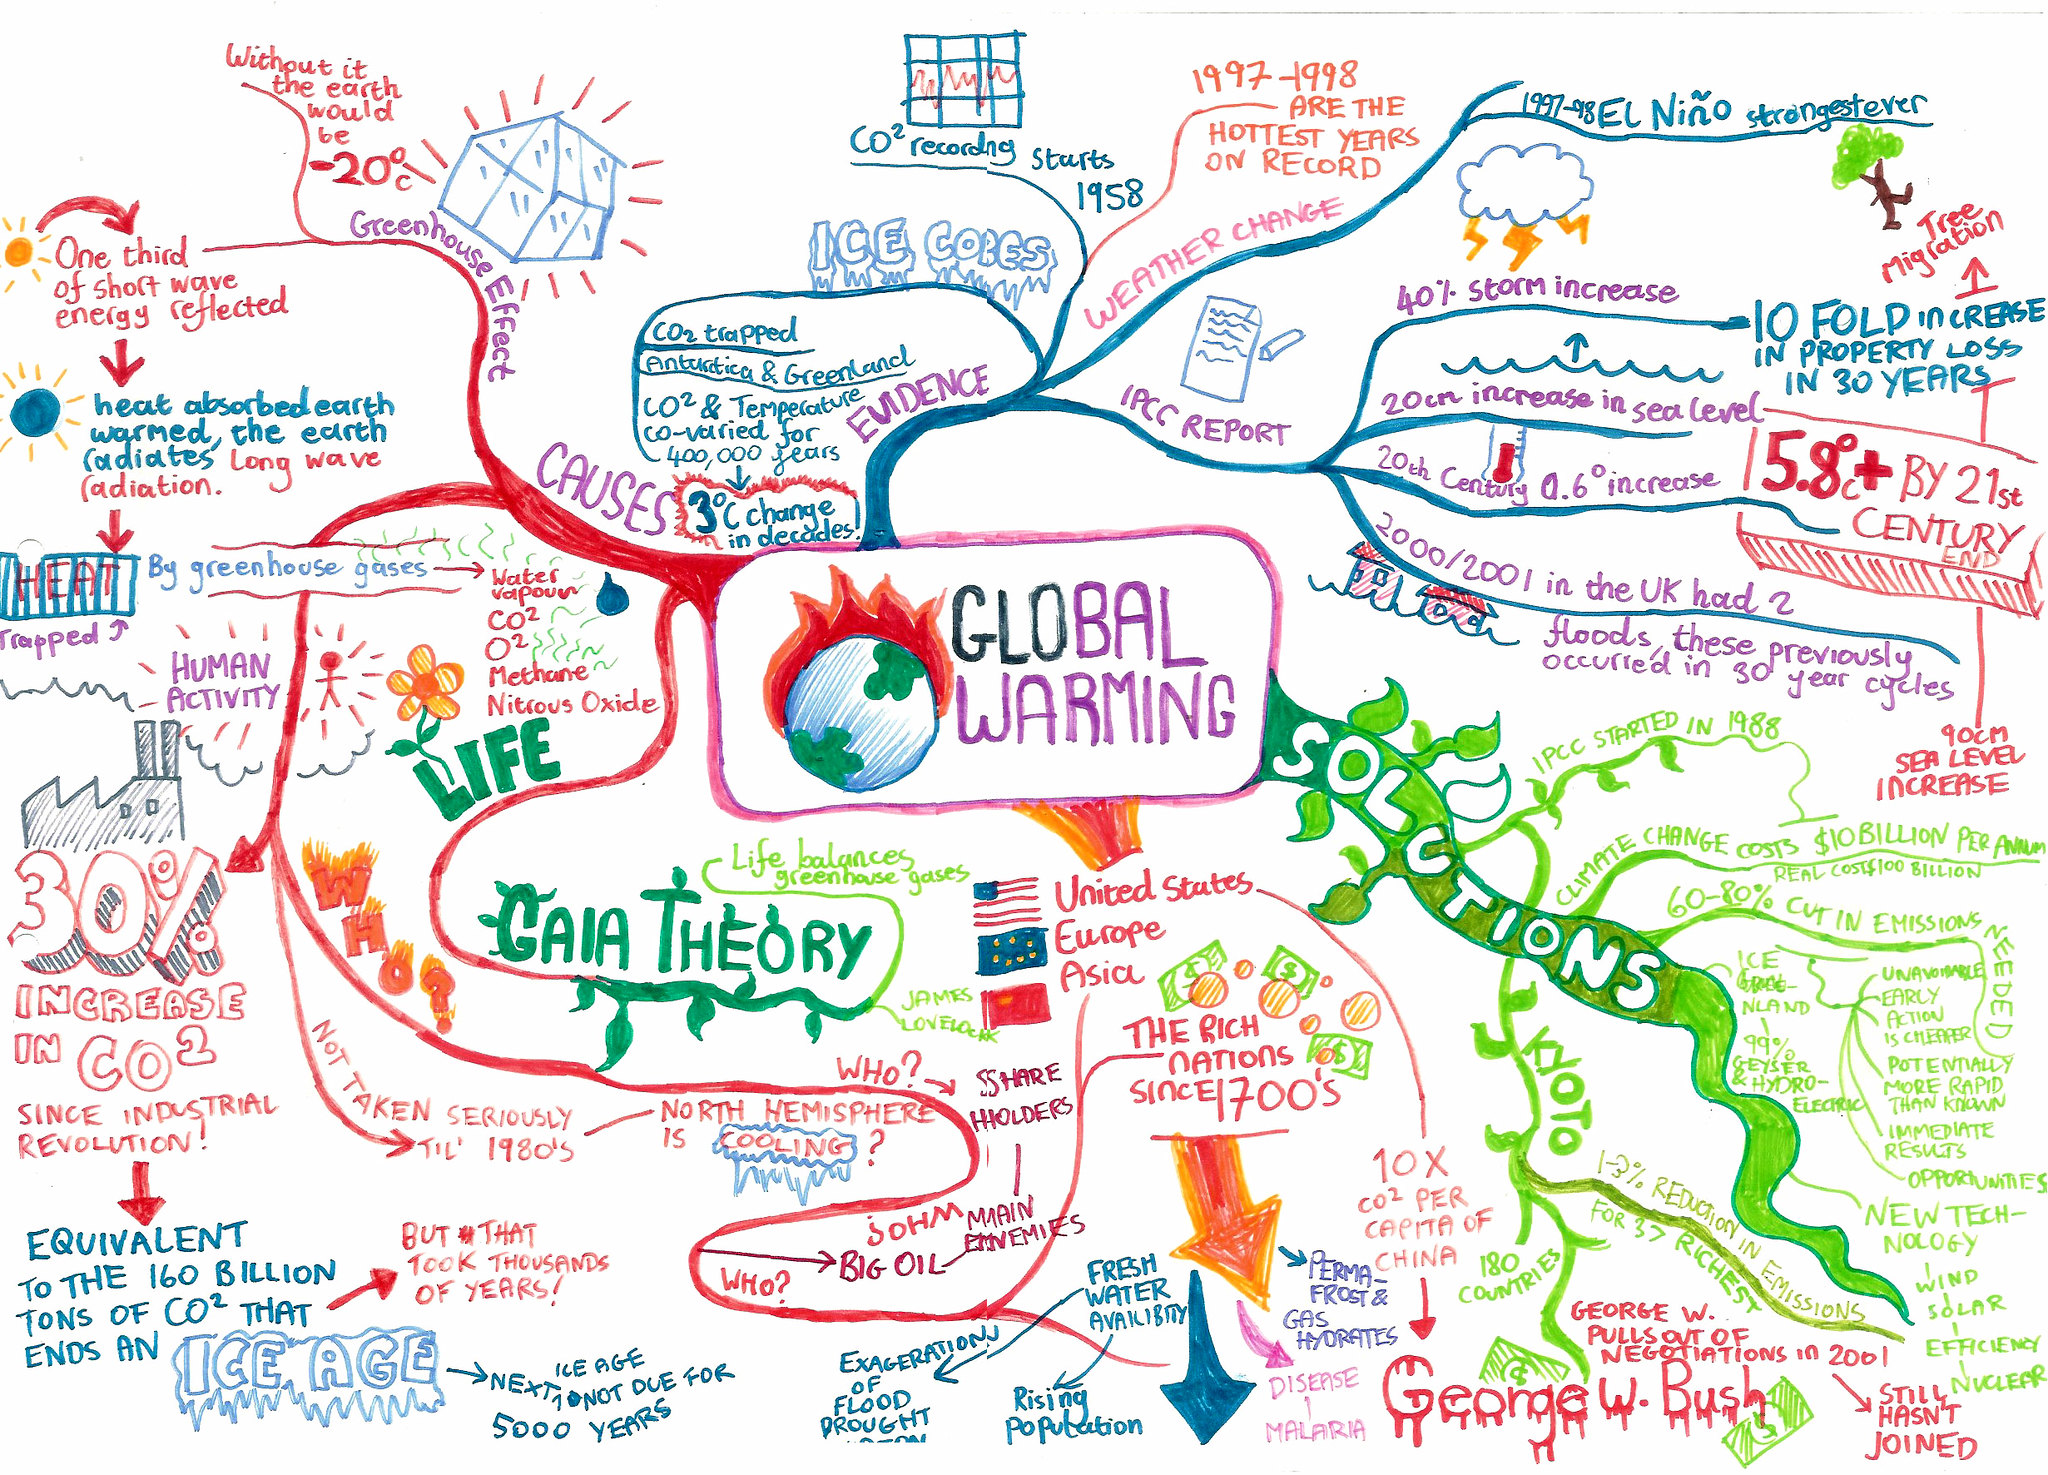 Without it
the earth
would
be
-20°c
Greenhouse Effect
One third
of short wave
energy reflected
heat absorbed earth
warmed, the earth
radiates long wave
radiation.
HEAT
Trapped
By greenhouse gases
Water
vapour
CO²
O²
Methane
Nitrous Oxide
CAUSES
HUMAN
ACTIVITY
30%
INCREASE
IN CO²
SINCE INDUSTRIAL
REVOLUTION!
EQUIVALENT
TO THE 160 BILLION
TONS OF CO² THAT
ENDS AN
ICE AGE
BUT THAT
TOOK THOUSANDS
OF YEARS!
NEXT ICE AGE
NOT DUE FOR
5000 YEARS
LIFE
GAIA THEORY
Life balances
greenhouse gases
JAMES
LOVELOCK
WHO?
NOT TAKEN SERIOUSLY
TIL' 1980'S
NORTH HEMISPHERE
IS COOLING?
WHO?
SHARE
HOLDERS
MAIN
ENEMIES
BIG OIL
WHO?
CO² recording starts
1958
ICE CORES
CO2 trapped
Antarctica & Greenland
CO² & Temperature
co-varied for
400,000 years
3°C change
in decades!
EVIDENCE
1997-1998
ARE THE
HOTTEST YEARS
ON RECORD
WEATHER CHANGE
1997-98 EL NIÑO strongest ever
Tree
Migration
IPCC REPORT
40% storm increase
10 FOLD INCREASE
IN PROPERTY LOSS
IN 30 YEARS
20cm increase in sea level
20th Century 0.6° increase
5.8°c+ BY 21st
CENTURY
END
2000/2001 in the UK had 2
floods, these previously
occurred in 30 year cycles
90CM
SEA LEVEL
INCREASE
GLOBAL
WARMING
United States
Europe
Asia
THE RICH
NATIONS
SINCE 1700'S
10X
CO² PER
CAPITA OF
CHINA
FRESH
WATER
EXAGERATION
OF
FLOOD
DROUGHT
Rising
population
PERMA-
FROST &
GAS
HYDRATES
DISEASE
MALARIA
SOLUTIONS
IPCC STARTED IN 1988
CLIMATE CHANGE COSTS $10 BILLION PER ANNUM
REAL COST $100 BILLION
60-80% CUT IN EMISSIONS
NEEDED
ICE
NLAND
99%
GEYSER
& HYDRO-
ELECTRIC
UNAVOIDABLE
EARLY
ACTION
IS CHEAPER
POTENTIALLY
MORE RAPID
THAN KNOWN
IMMEDIATE
RESULTS
OPPORTUNITIES
NEW TECH-
NOLOGY
WIND
SOLAR
EFFICIENCY
NUCLEAR
KYOTO
1-3% REDUCTION IN EMISSIONS
FOR 37 RICHEST
180
COUNTRIES
GEORGE W.
PULLS OUT OF
NEGOTIATIONS IN 2001
George W. Bush
STILL
HASN'T
JOINED